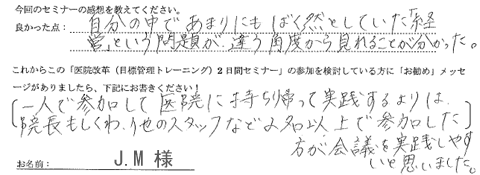 今回のセミナーの感想を教えてください。
良かった点：自分の中であまりにもばく然としていた「経
営」という問題が、違う角度から見れることが分かった。
これからこの「医院改革（目標管理トレーニング）２日間セミナー」の参加を検討している方に「お勧め」メッセ
ージがありましたら、下記にお書きください！
一人で参加して医院に持ち帰って実践するよりは、
院長もしくわ、他のスタッフなど2名以上で参加した
方が会議を実践しやす
いと思いました。
お名前： J.M 様